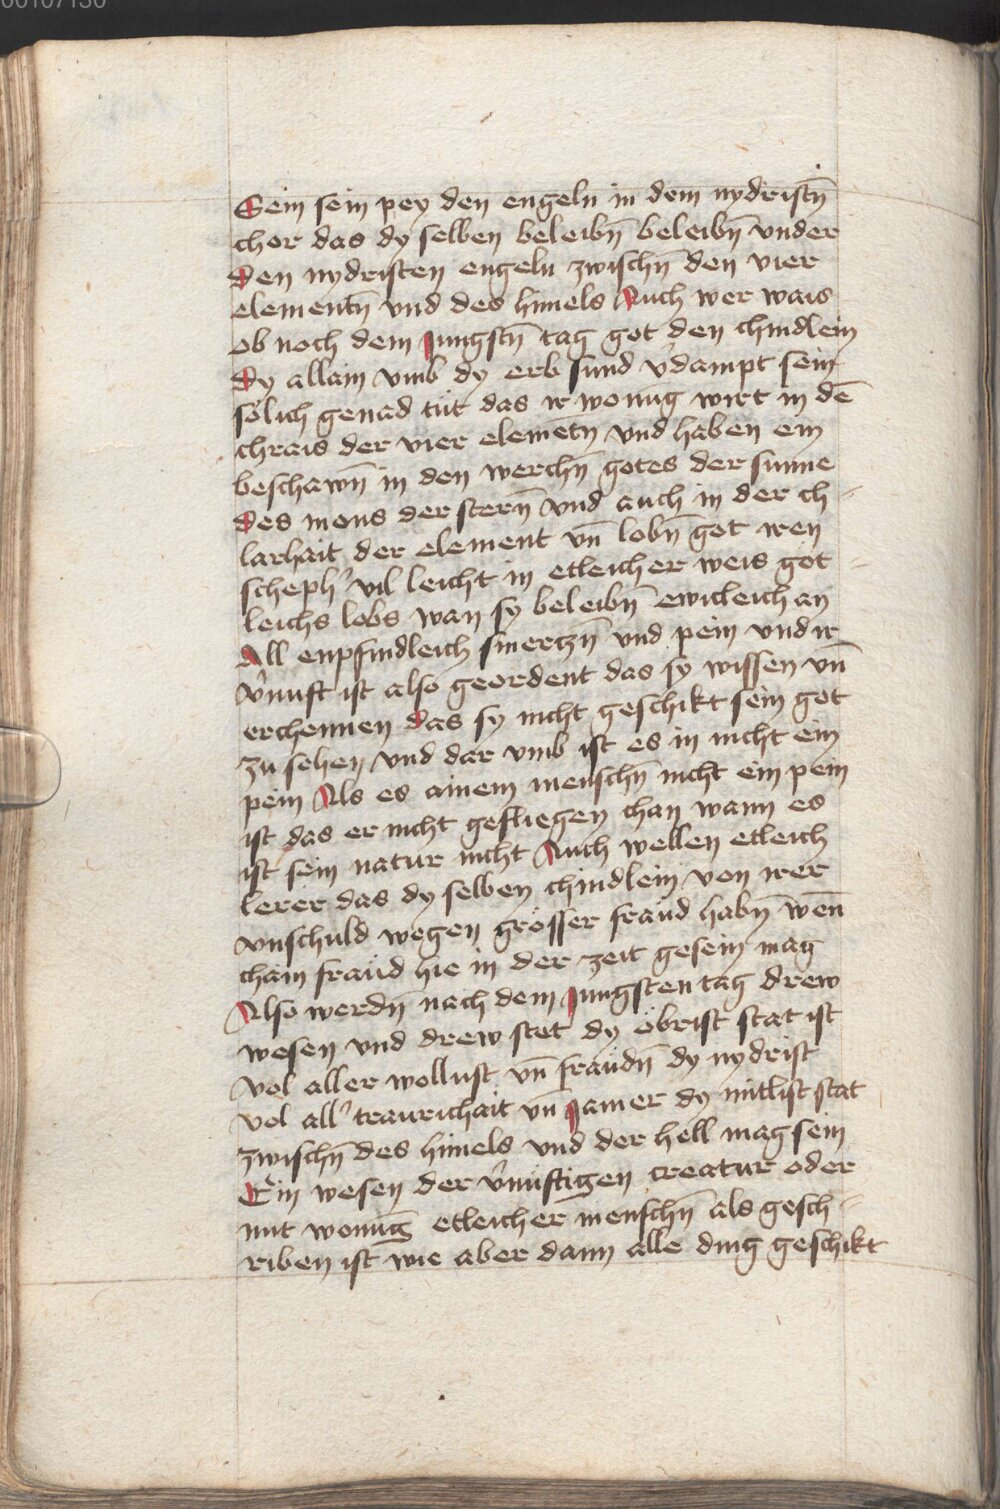 Sein sein pey den engeln in dem nydristn̄
chor das dy selben beleibn̄ beleibn̄ vnder
Den nydristen engeln zwischn̄ den vier
elementn̄ vnd des himels Auch wer wais
ob noch dem Jungstn̄ tag got den chindlein
Dy allain vmb dy erb sund v̉dampt sein
sölich genad tüt das ir wonūg wirt in dē
chrais der vier elemetn̄ vnd haben ein
beschawn̄ in den werchn̄ gotes der sunne
Des mons der stern̄ vnd auch in der ch
larhait der element vn̄ lobn̄ got iren
scheph̉ vil leicht in etleicher weis göt
leichs lobs wan sy beleibn̄ ewicleich an
All enpfindleich smerczn̄ vnd pein vnd ir
v̉nuft ist also geordent das sy wissen vn̄
erchennen das sy nicht geschikt sein got
zu sehen vnd dar vmb ist es in nicht ein
pein Als es ainem menschn̄ nicht ein pein
ist das er nicht gefliegen chan wann es
ist sein natur nicht Auch wellen etleich
lerer das dy selben chindlein von irer
vnschuld wegen grösser fraüd habn̄ wen̄
chain fraüd hie in der zeit gesein mag
Also werdn̄ nach dem Jungsten tag drew
wesen vnd drew stet dy öbrist stat ist
vol aller wollust vn̄ fraüdn̄ dy nydrist
vol all̉ traurichait vn̄ Jamer dy mitlist stat
zwischn̄ des himels vnd der hell mag sein
Ein wesen der v̉nüftigen creatur oder
mit wonūg etleicher menschn̄ als gesch
riben ist wie aber dann alle ding geschikt